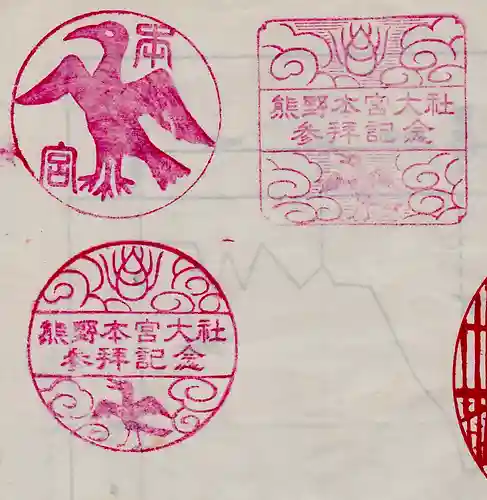 本
宮
熊野本宮大社
参拝記念
熊野本宮大社
参拝記念